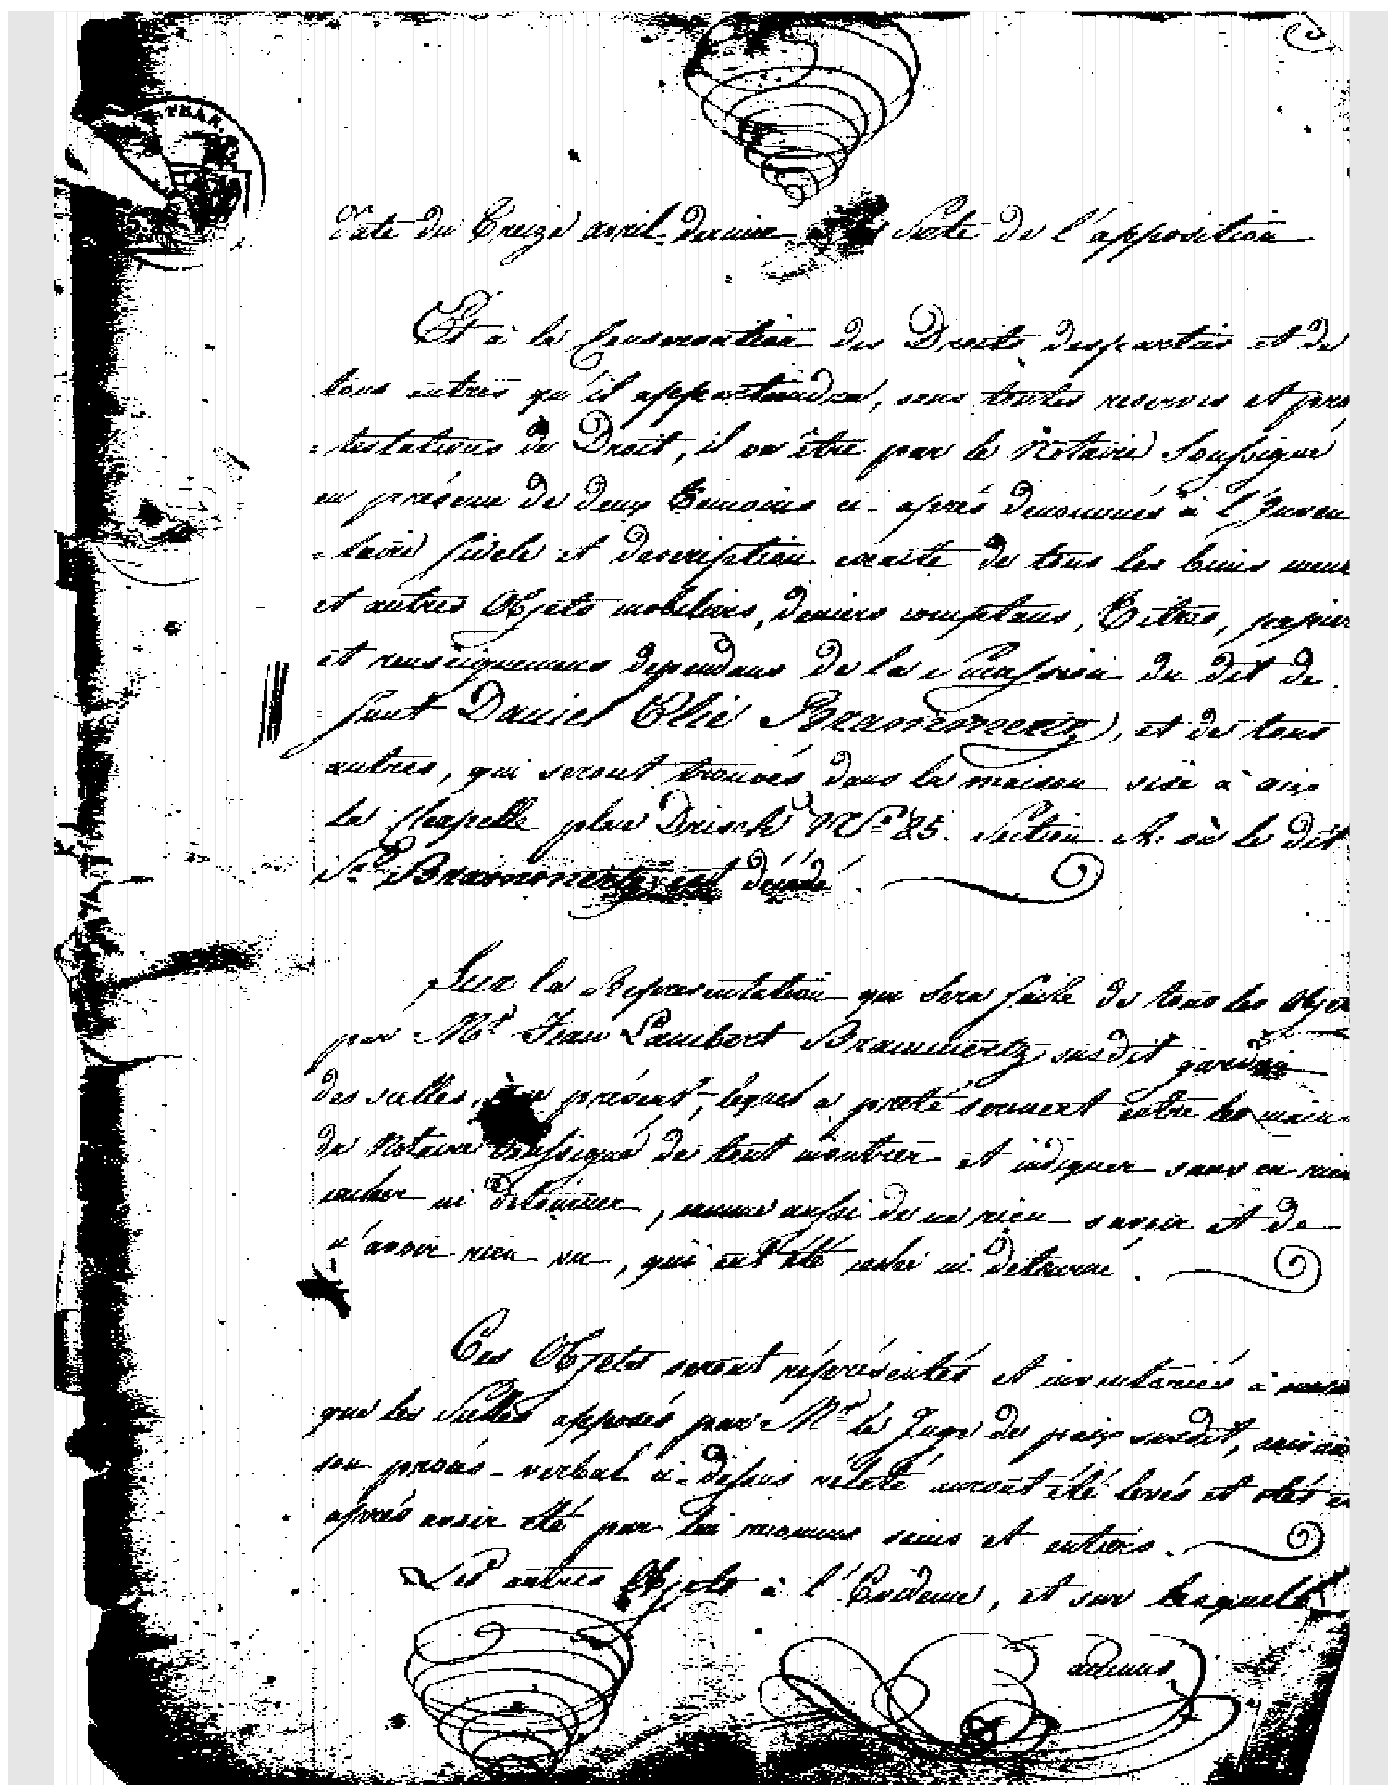 Date du Treize avril dernier Date de l'apposition
Et à la Conservation des Droits des parties et de
tous autres qu'il appartiendra, sous toutes reserves et pro
=testations de Droit, il va être par le Notaire soussigné
en présence de deux Temoins ci-après denommés à l'Inven
=taire fidele et description exacte de tous les biens meub
et autres Objets mobiliers, deniers comptans, Titres, papier
et renseignemens dependans de la succession du dit de
=funt Daniel Elie Brammertz, et de tous
autres, qui seront trouvés dans la maison sise à aix
la Chapelle place Drisch N.º 85. Section A. où le dit
S.r Brammertz est décédé.
Sur la Representation qui sera faite de tous les Obje
par M.r Jean Lambert Brammertz susdit gardien
des scelles, présent, lequel a preté serment entre les mains
du Notaire soussigné de tout montrer et indiquer sans en rien
cacher ni detourner, comme aussi de ne rien savoir et de
n'avoir rien vu, qui eut été caché ni detourné.
Ces Objets seront réprésentés et inventariés à mesure
que les Scelles apposés par M.r le Juge de paix susdit, suivan
son procès-verbal ci-dessus rélaté auront été levés et otés
après avoir été par lui reconnus sains et entiers.
Les autres Objets à l'Evidence, et sur lesquels